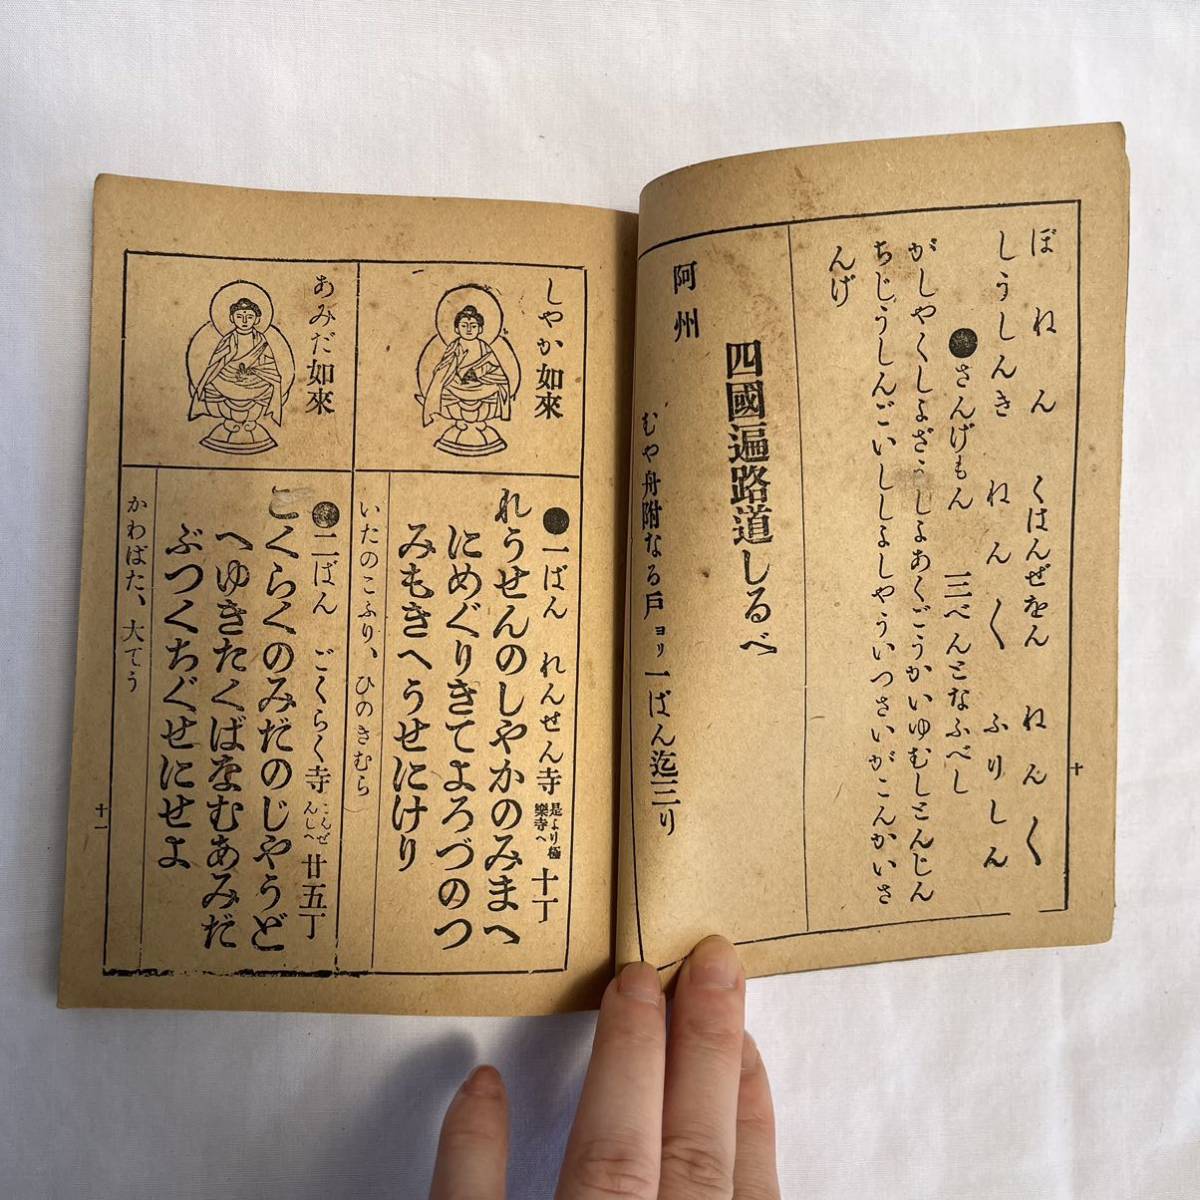 ぼねん くはんぜをん ねんく
しうしんき ねんく ふりしん
●さんげもん 三べんとなふべし
がしやくしよざうしよあくごうかいゆむしとんじん
ちじうしんごいししよしやういつさいがこんかいさ
んげ
四國遍路道しるべ
阿州
むや舟附なる戸ヨリ一ばん迄三リ
十
しやか如來
●一ばん れんぜん寺 是より極樂寺へ 十丁
れうせんのしやかのみまへ
にめぐりきてよろづのつ
みもきへうせにけり
いたのこふり、ひのきむら
あみだ如來
●二ばん ごくらく寺 こんぜんしへ 廿五丁
ごくらくのみだのじやうど
へゆきたくばなむあみだ
ぶつくちぐせにせよ
かわばた、大てう
十一